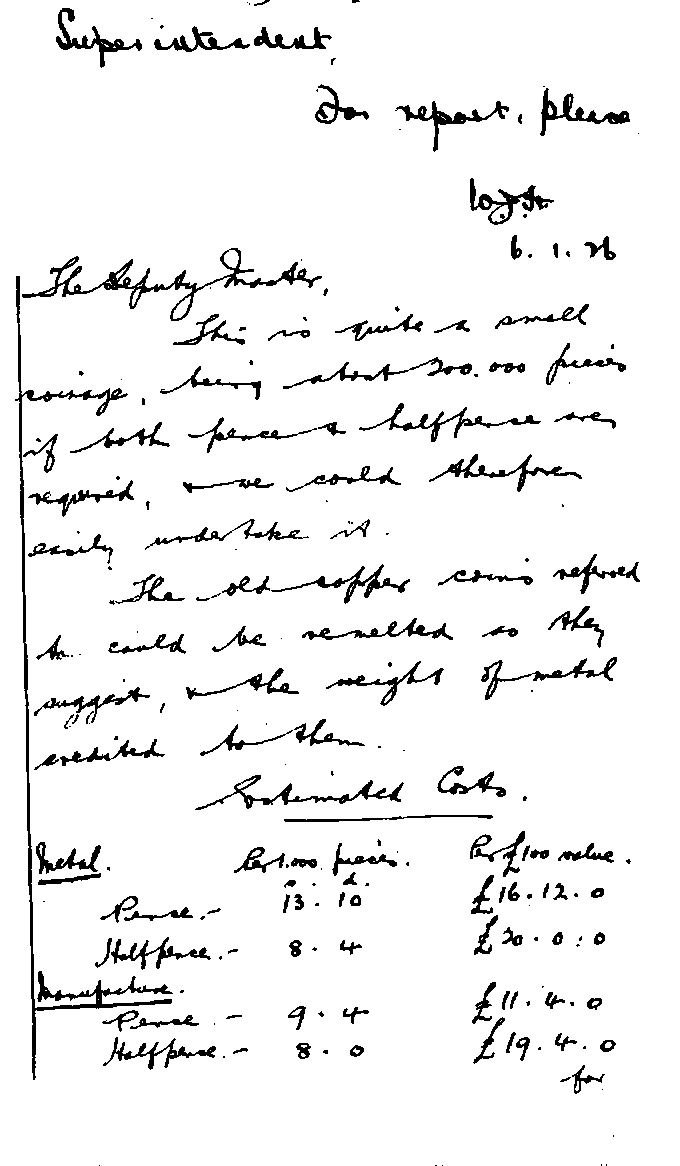 Superintendent,
For report, please
6. 1. 26
The Deputy Master,
This is quite a small
coinage, being about 200.000 pieces
if both pence & halfpence are
required, & we could therefore
easily undertake it.
The old copper coins referred
to could be remelted as they
suggest, & the weight of metal
credited to them.
Estimated Costs.
Metal. Per 1.000 pieces. Per £100 value.
s. d.
Pence.- 13. 10 £16.12.0
Halfpence.- 8. 4 £20.0.0
Manufacture.
Pence - 9. 4 £11.4.0
Halfpence.- 8. 0 £19.4.0
for